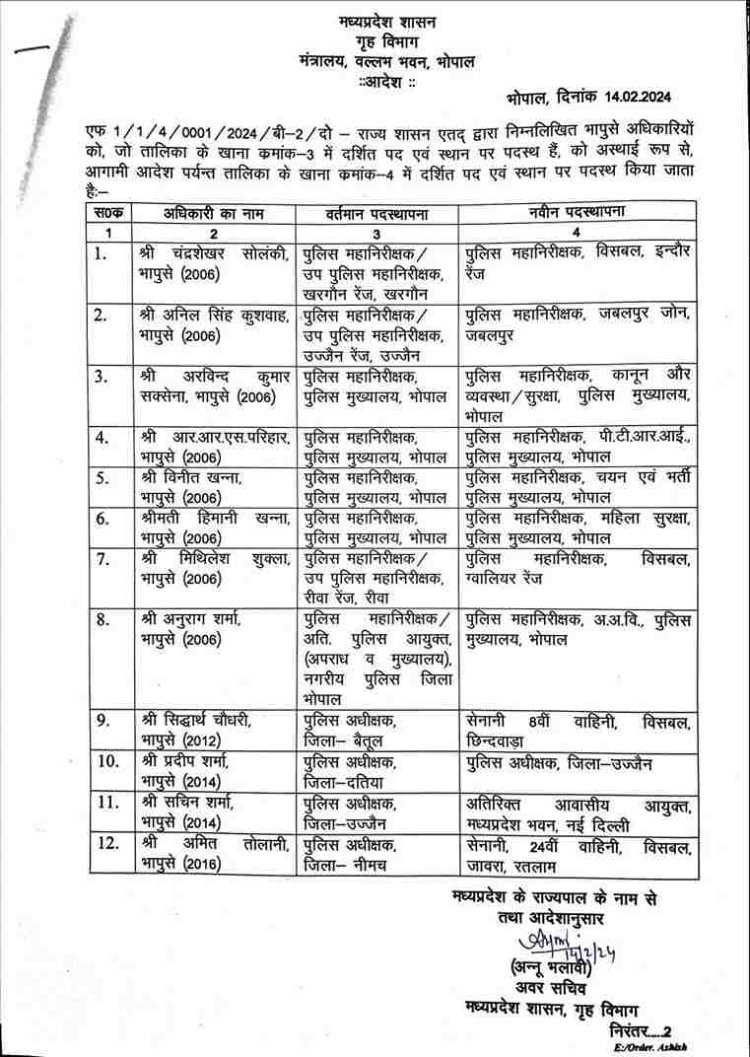 मध्यप्रदेश शासन
गृह विभाग
मंत्रालय, वल्लभ भवन, भोपाल
::आदेश ::
भोपाल, दिनांक 14.02.2024
एफ 1/1/4/0001/2024/बी-2/दो – राज्य शासन एतद् द्वारा निम्नलिखित भापुसे अधिकारियों
को, जो तालिका के खाना कमांक-3 में दर्शित पद एवं स्थान पर पदस्थ हैं, को अस्थाई रूप से,
आगामी आदेश पर्यन्त तालिका के खाना कमांक-4 में दर्शित पद एवं स्थान पर पदस्थ किया जाता
है:–
स0क अधिकारी का नाम वर्तमान पदस्थापना नवीन पदस्थापना
1 2 3 4
1. श्री चंद्रशेखर सोलंकी, पुलिस महानिरीक्षक/ पुलिस महानिरीक्षक, विसबल, इन्दौर
भापुसे (2006) उप पुलिस महानिरीक्षक, रेंज
खरगौन रेंज, खरगौन
2. श्री अनिल सिंह कुशवाह, पुलिस महानिरीक्षक/ पुलिस महानिरीक्षक, जबलपुर जोन,
भापुसे (2006) उप पुलिस महानिरीक्षक, जबलपुर
उज्जैन रेंज, उज्जैन
3. श्री अरविन्द कुमार पुलिस महानिरीक्षक, पुलिस महानिरीक्षक, कानून और
सक्सेना, भापुसे (2006) पुलिस मुख्यालय, भोपाल व्यवस्था/सुरक्षा, पुलिस मुख्यालय,
भोपाल
4. श्री आर.आर.एस.परिहार, पुलिस महानिरीक्षक, पुलिस महानिरीक्षक, पी.टी.आर.आई.,
भापुसे (2006) पुलिस मुख्यालय, भोपाल पुलिस मुख्यालय, भोपाल
5. श्री विनीत खन्ना, पुलिस महानिरीक्षक, पुलिस महानिरीक्षक, चयन एवं भर्ती
भापुसे (2006) पुलिस मुख्यालय, भोपाल पुलिस मुख्यालय, भोपाल
6. श्रीमती हिमानी खन्ना, पुलिस महानिरीक्षक, पुलिस महानिरीक्षक, महिला सुरक्षा,
भापुसे (2006) पुलिस मुख्यालय, भोपाल पुलिस मुख्यालय, भोपाल
7. श्री मिथिलेश शुक्ला, पुलिस महानिरीक्षक/ पुलिस महानिरीक्षक, विसबल,
भापुसे (2006) उप पुलिस महानिरीक्षक, ग्वालियर रेंज
रीवा रेंज, रीवा
8. श्री अनुराग शर्मा, पुलिस महानिरीक्षक/ पुलिस महानिरीक्षक, अ.अ.वि., पुलिस
भापुसे (2006) अति. पुलिस आयुक्त, मुख्यालय, भोपाल
(अपराध व मुख्यालय),
नगरीय पुलिस जिला
भोपाल
9. श्री सिद्धार्थ चौधरी, पुलिस अधीक्षक, सेनानी 8वीं वाहिनी, विसबल,
भापुसे (2012) जिला– बैतूल छिन्दवाड़ा
10. श्री प्रदीप शर्मा, पुलिस अधीक्षक, पुलिस अधीक्षक, जिला–उज्जैन
भापुसे (2014) जिला–दतिया
11. श्री सचिन शर्मा, पुलिस अधीक्षक, अतिरिक्त आवासीय आयुक्त,
भापुसे (2014) जिला–उज्जैन मध्यप्रदेश भवन, नई दिल्ली
12. श्री अमित तोलानी, पुलिस अधीक्षक, सेनानी, 24वीं वाहिनी, विसबल,
भापुसे (2016) जिला– नीमच जावरा, रतलाम
मध्यप्रदेश के राज्यपाल के नाम से
तथा आदेशानुसार
14/2/24
(अन्नू भलावी)
अवर सचिव
मध्यप्रदेश शासन, गृह विभाग
निरंतर....2
E:/Order. Ashish